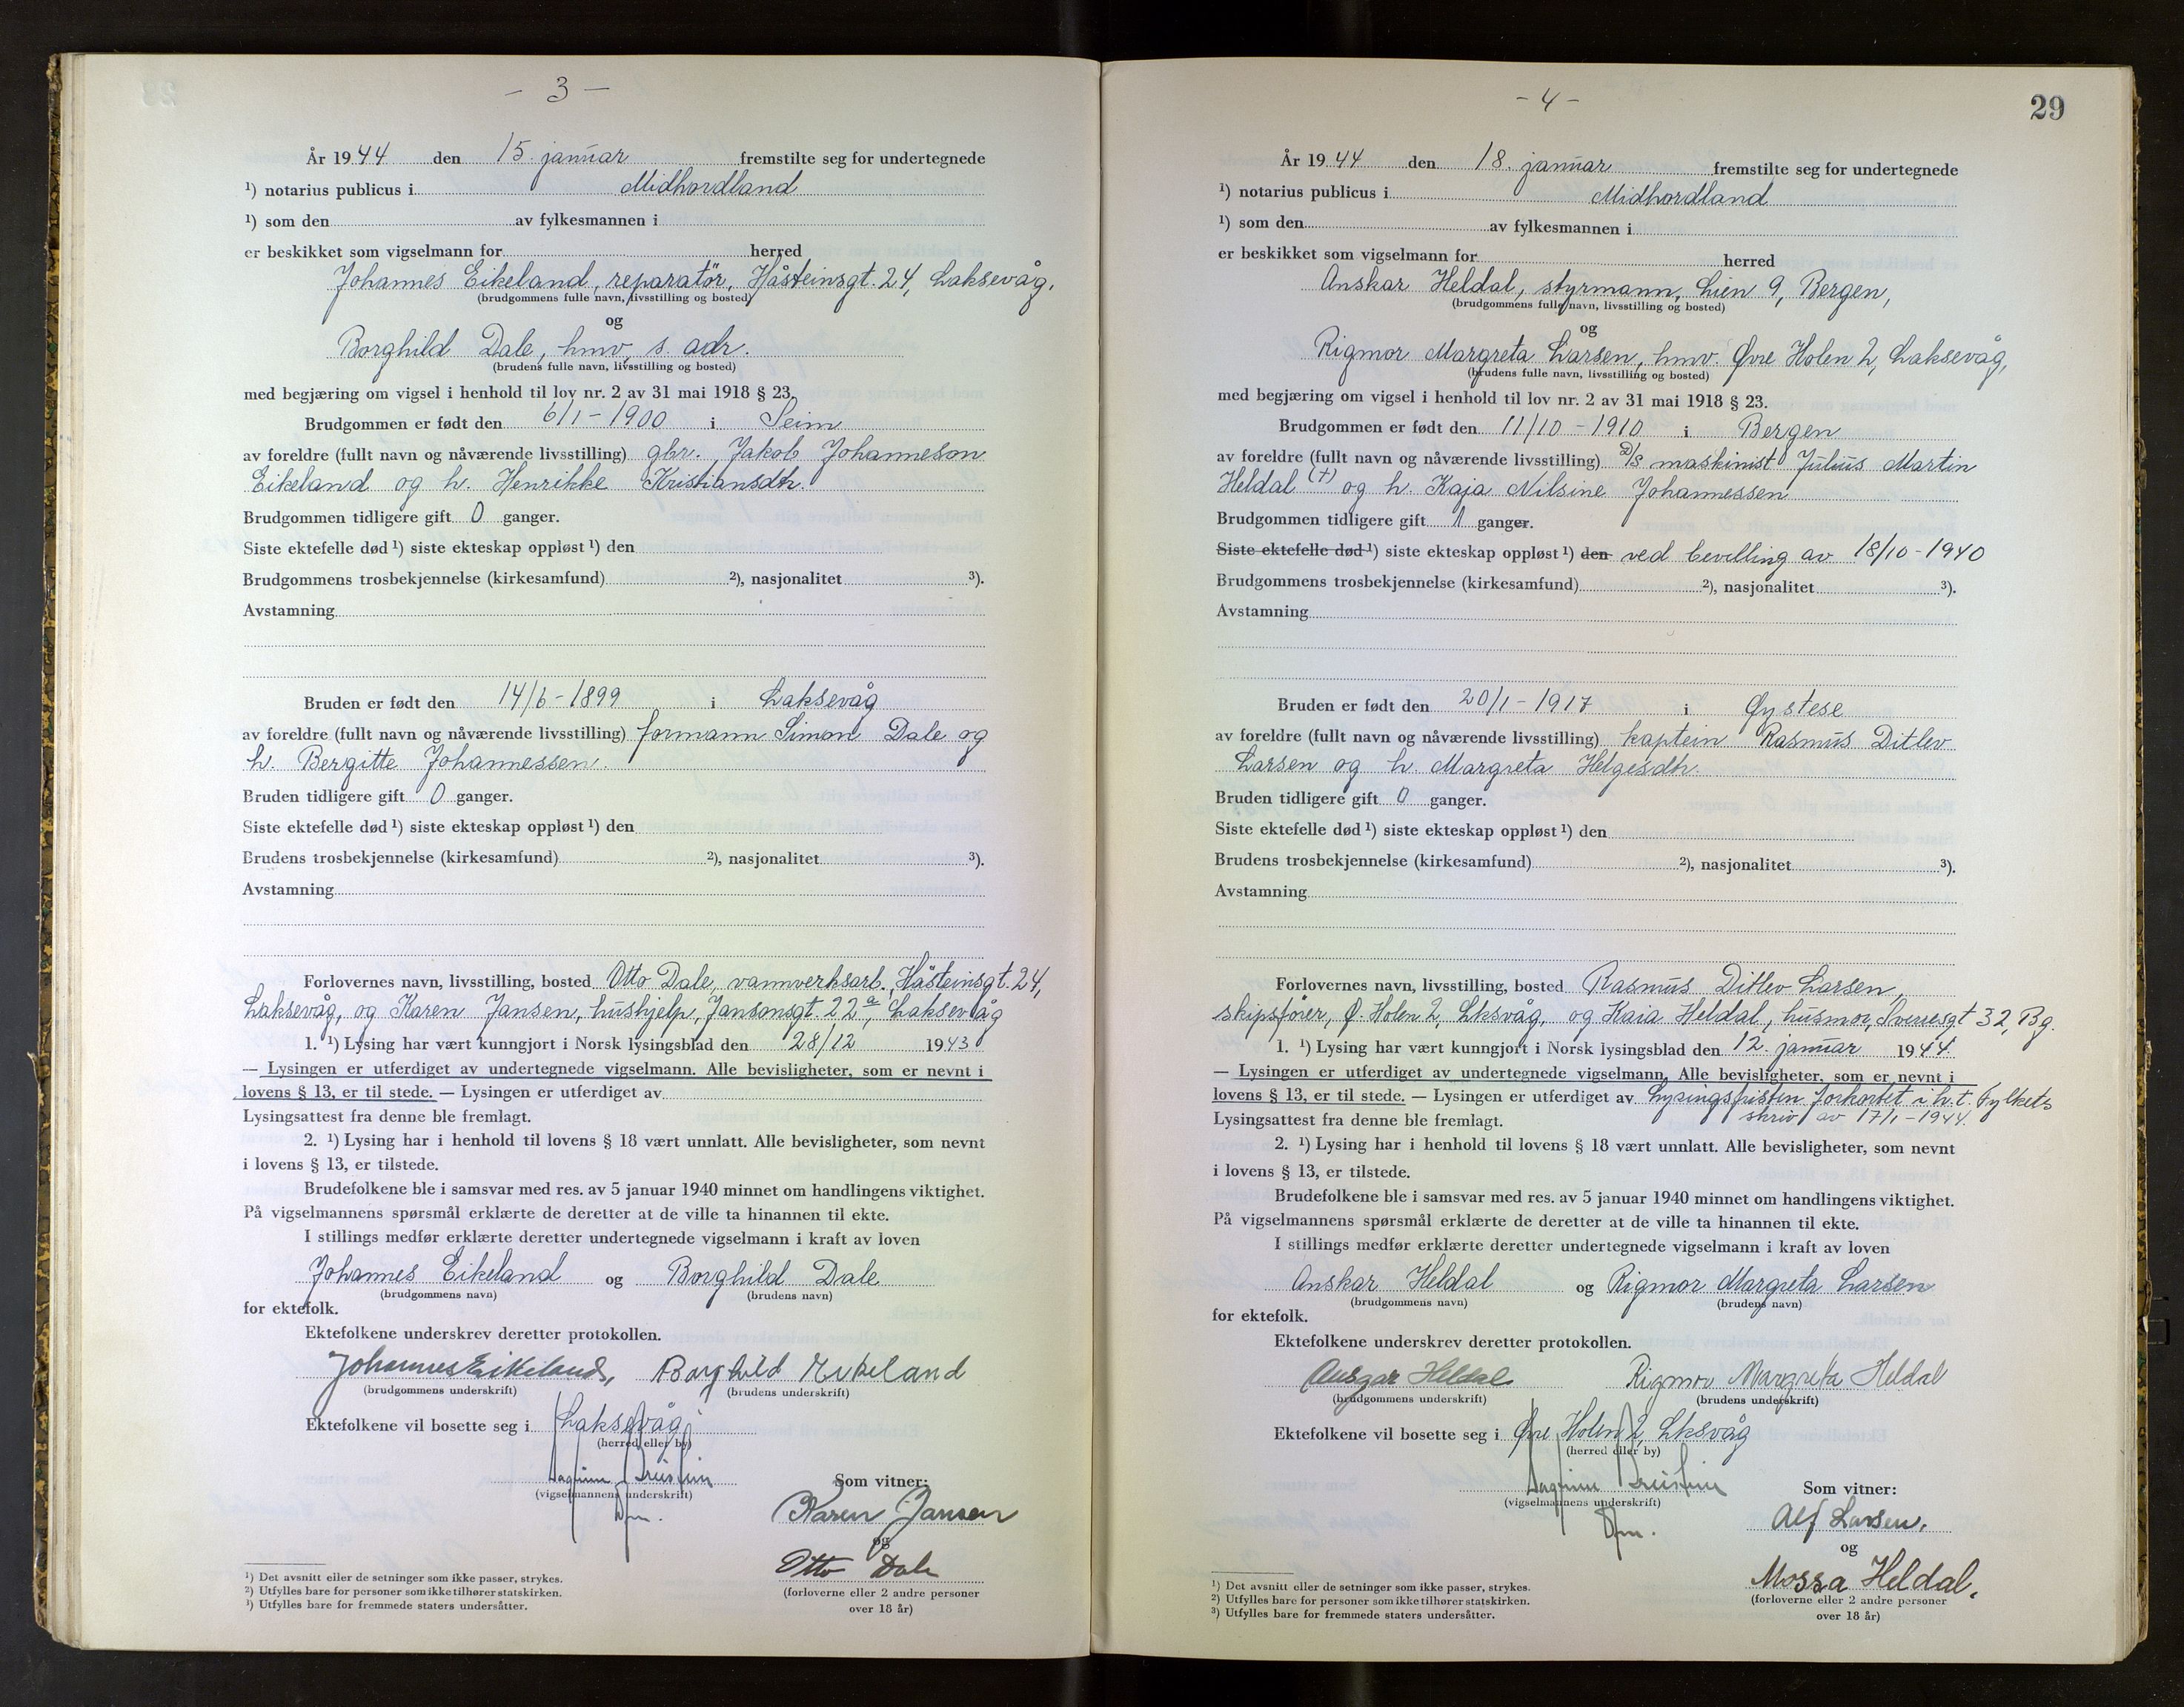 - 3 -
År 1944 den 15. januar fremstilte seg for undertegnede
¹) notarius publicus i Midhordland
¹) som den av fylkesmannen i
er beskikket som vigselmann for herred
Johannes Eikeland, reparatör, Håsteinsgt. 24, Laksevåg.
(brudgommens fulle navn, livsstilling og bosted)
og
Borghild Dale, hmv, s. adr.
(brudens fulle navn, livsstilling og bosted)
med begjæring om vigsel i henhold til lov nr. 2 av 31 mai 1918 § 23.
Brudgommen er født den 6/1 - 1900 i Seim
av foreldre (fullt navn og nåværende livsstilling) gbr. Jakob Johanneson
Eikeland og h. Henrikke Kristiansdtr.
Brudgommen tidligere gift 0 ganger.
Siste ektefelle død ¹) siste ekteskap oppløst ¹) den
Brudgommens trosbekjennelse (kirkesamfund) ²), nasjonalitet ³).
Avstamning
Bruden er født den 14/6 - 1899 i Laksevåg
av foreldre (fullt navn og nåværende livsstilling) formann Simon Dale og
h. Bergitte Johannessen.
Bruden tidligere gift 0 ganger.
Siste ektefelle død ¹) siste ekteskap oppløst ¹) den
Brudens trosbekjennelse (kirkesamfund) ²), nasjonalitet ³).
Avstamning
Forlovernes navn, livsstilling, bosted Otto Dale, vannverksarb., Håsteinsgt. 24,
Laksevåg, og Karen Jansen, hushjelp, Jansonsgt. 22a, Laksevåg
1. ¹) Lysing har vært kunngjort i Norsk lysingsblad den 28/12 1943
— Lysingen er utferdiget av undertegnede vigselmann. Alle bevisligheter, som er nevnt i
lovens § 13, er til stede. — Lysingen er utferdiget av
Lysingsattest fra denne ble fremlagt.
2. ¹) Lysing har i henhold til lovens § 18 vært unnlatt. Alle bevisligheter, som nevnt
i lovens § 13, er tilstede.
Brudefolkene ble i samsvar med res. av 5 januar 1940 minnet om handlingens viktighet.
På vigselmannens spørsmål erklærte de deretter at de ville ta hinannen til ekte.
I stillings medfør erklærte deretter undertegnede vigselmann i kraft av loven
Johannes Eikeland og Borghild Dale
(brudgommens navn) (brudens navn)
for ektefolk.
Ektefolkene underskrev deretter protokollen.
Johannes Eikeland, Borghild Eikeland
(brudgommens underskrift) (brudens underskrift)
Ektefolkene vil bosette seg i Laksevåg
(herred eller by)
(vigselmannens underskrift)
Som vitner:
Karen Jansen
og
Otto Dale
(forloverne eller 2 andre personer
over 18 år)
¹) Det avsnitt eller de setninger som ikke passer, strykes.
²) Utfylles bare for personer som ikke tilhører statskirken.
³) Utfylles bare for fremmede staters undersåtter.
- 4 -
29
År 1944 den 18. januar fremstilte seg for undertegnede
¹) notarius publicus i Midhordland
¹) som den av fylkesmannen i
er beskikket som vigselmann for herred
Anskar Heldal, styrmann, Lien 9, Bergen,
(brudgommens fulle navn, livsstilling og bosted)
og
Rigmor Margreta Larsen, hmv. Øvre Holen 2, Laksevåg,
(brudens fulle navn, livsstilling og bosted)
med begjæring om vigsel i henhold til lov nr. 2 av 31 mai 1918 § 23.
Brudgommen er født den 11/10 - 1910 i Bergen
av foreldre (fullt navn og nåværende livsstilling) D/S maskinist Julius Martin
Heldal (†) og h. Kaja Nilsine Johannessen
Brudgommen tidligere gift 1 ganger.
Siste ektefelle død ¹) siste ekteskap oppløst ¹) den ved bevilling av 18/10 - 1940
Brudgommens trosbekjennelse (kirkesamfund) ²), nasjonalitet ³).
Avstamning
Bruden er født den 20/1 - 1917 i Øystese
av foreldre (fullt navn og nåværende livsstilling) kaptein Rasmus Ditlev
Larsen og h. Margreta Helgesdtr.
Bruden tidligere gift 0 ganger.
Siste ektefelle død ¹) siste ekteskap oppløst ¹) den
Brudens trosbekjennelse (kirkesamfund) ²), nasjonalitet ³).
Avstamning
Forlovernes navn, livsstilling, bosted Rasmus Ditlev Larsen,
skipsfører, Ø. Holen 2, Lksvåg, og Kaia Heldal, husmor, Sverresgt 32, Bg.
1. ¹) Lysing har vært kunngjort i Norsk lysingsblad den 12. januar 1944.
— Lysingen er utferdiget av undertegnede vigselmann. Alle bevisligheter, som er nevnt i
lovens § 13, er til stede. — Lysingen er utferdiget av Lysingsfristen forkortet i h.t. Fylkets
skriv av 17/1 - 1944.
Lysingsattest fra denne ble fremlagt.
2. ¹) Lysing har i henhold til lovens § 18 vært unnlatt. Alle bevisligheter, som nevnt
i lovens § 13, er tilstede.
Brudefolkene ble i samsvar med res. av 5 januar 1940 minnet om handlingens viktighet.
På vigselmannens spørsmål erklærte de deretter at de ville ta hinannen til ekte.
I stillings medfør erklærte deretter undertegnede vigselmann i kraft av loven
Anskar Heldal og Rigmor Margreta Larsen
(brudgommens navn) (brudens navn)
for ektefolk.
Ektefolkene underskrev deretter protokollen.
Ansgar Heldal Rigmor Margreta Heldal
(brudgommens underskrift) (brudens underskrift)
Ektefolkene vil bosette seg i Øvre Holen 2, Lksvåg
(herred eller by)
(vigselmannens underskrift)
Som vitner:
Alf Larsen.
og
Mossa Heldal.
(forloverne eller 2 andre personer
over 18 år)
¹) Det avsnitt eller de setninger som ikke passer, strykes.
²) Utfylles bare for personer som ikke tilhører statskirken.
³) Utfylles bare for fremmede staters undersåtter.